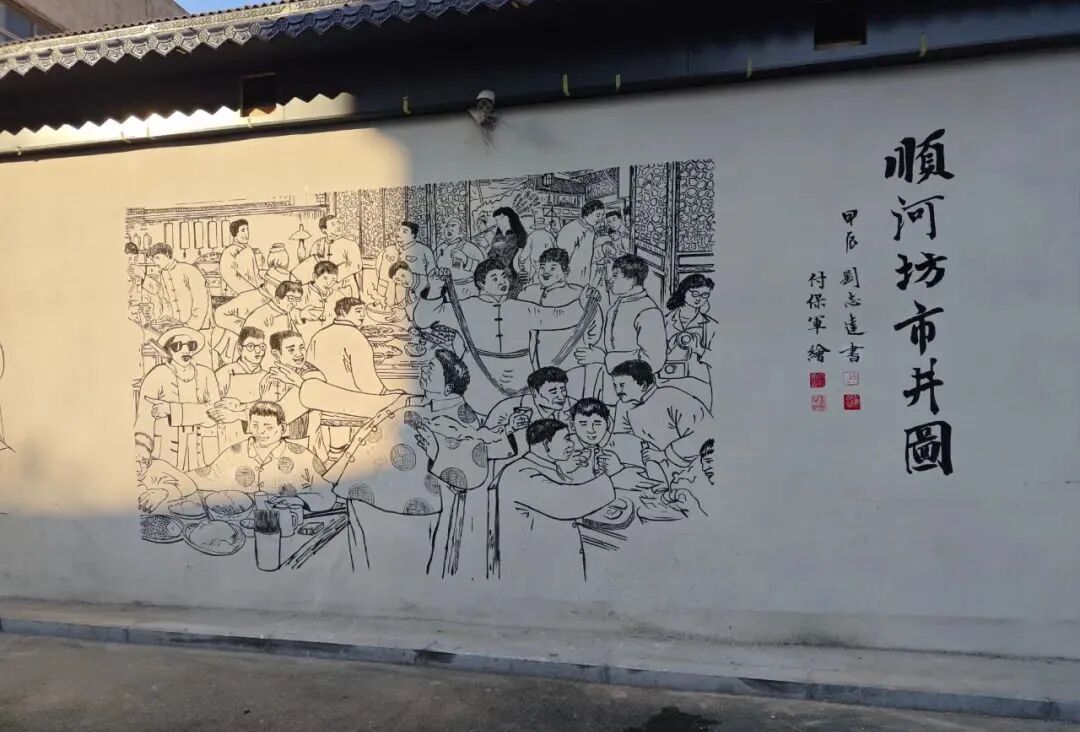 順河坊市井圖
甲辰 劉志達書
付保軍繪